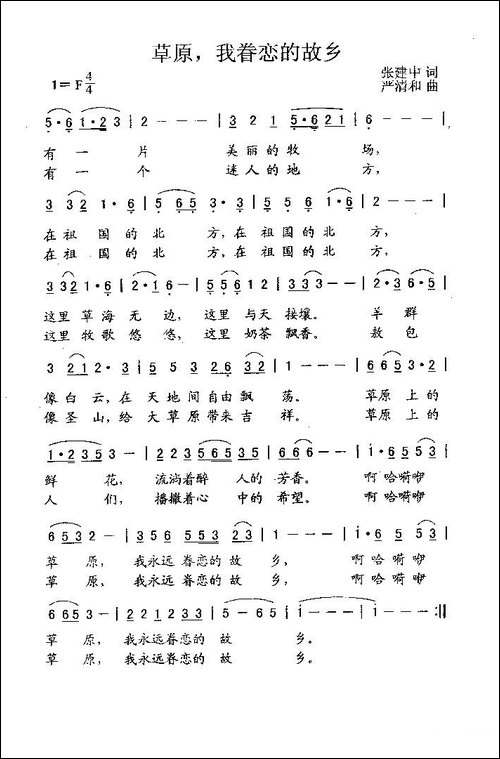 草原，我眷恋的故乡
1=F 4/4
张建中 词
严清和 曲
5·6 1·23 | 2 - - - | 3 3 2 1 5·651 | 6 - - - |
有 一 片 美丽的牧 场，
有 一 个 迷人的地 方，
3 33 2 1·6 | 5 65 3 - | 3 5 5 6 5·6 | 2 - - - |
在祖 国的北 方，在祖 国的北 方，
在祖 国的北 方，在祖 国的北 方，
3 332 1·6 | 2·16 - | 5 5 6 7 0 1 2 | 3 3 3 - - | 2·3 6·5 |
这里 草海 无 边， 这里 与天 接壤。 羊 群
这里 牧歌 悠 悠， 这里 奶茶 飘香。 敖 包
3 212 - | 5 5 3 2 6 3 2 | 1 - - - | 6 6 5 3·2 |
像白 云，在 天地间自由飘 荡。 草原 上的
像圣 山，给 大草原带来吉 祥。 草原 上的
1·2353 - | 2 2 3 5653 5 | 6 6 6 - - | i·6 553 |
鲜 花， 流淌着醉 人的芳香。 啊哈嗬咿
人 们， 播撒着心 中的希望。 啊哈嗬咿
6532 - - | 3 5 6 5 5 3 23 | 1 - - - | i·6 5 53 |
草 原， 我永远 眷恋的 故 乡， 啊哈嗬咿
草 原， 我永远 眷恋的 故 乡， 啊哈嗬咿
6 653 - - | 2 1 2 3 5 5 | 5 - 6 5 - | i - - - | i - - - :||
草 原， 我永远眷恋的 故 乡。
草 原， 我永远眷恋的 故 乡。